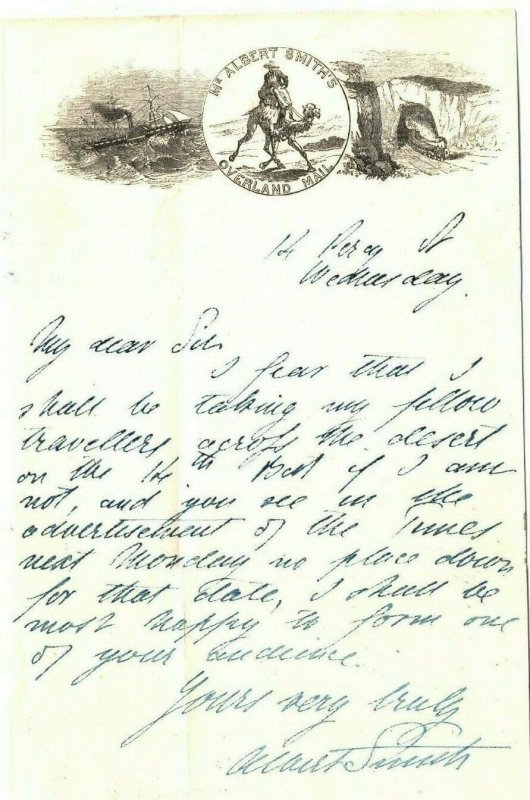 Mr ALBERT SMITH'S
OVERLAND MAIL
14 Percy St
Wednesday.
My dear Sir
I fear that I
shall be taking my fellow
travellers across the desert
on the 14th But if I am
not, and you see in the
advertisement of the Times
next Monday no place down
for that date, I shall be
most happy to form one
of your audience.
Yours very truly
Albert Smith